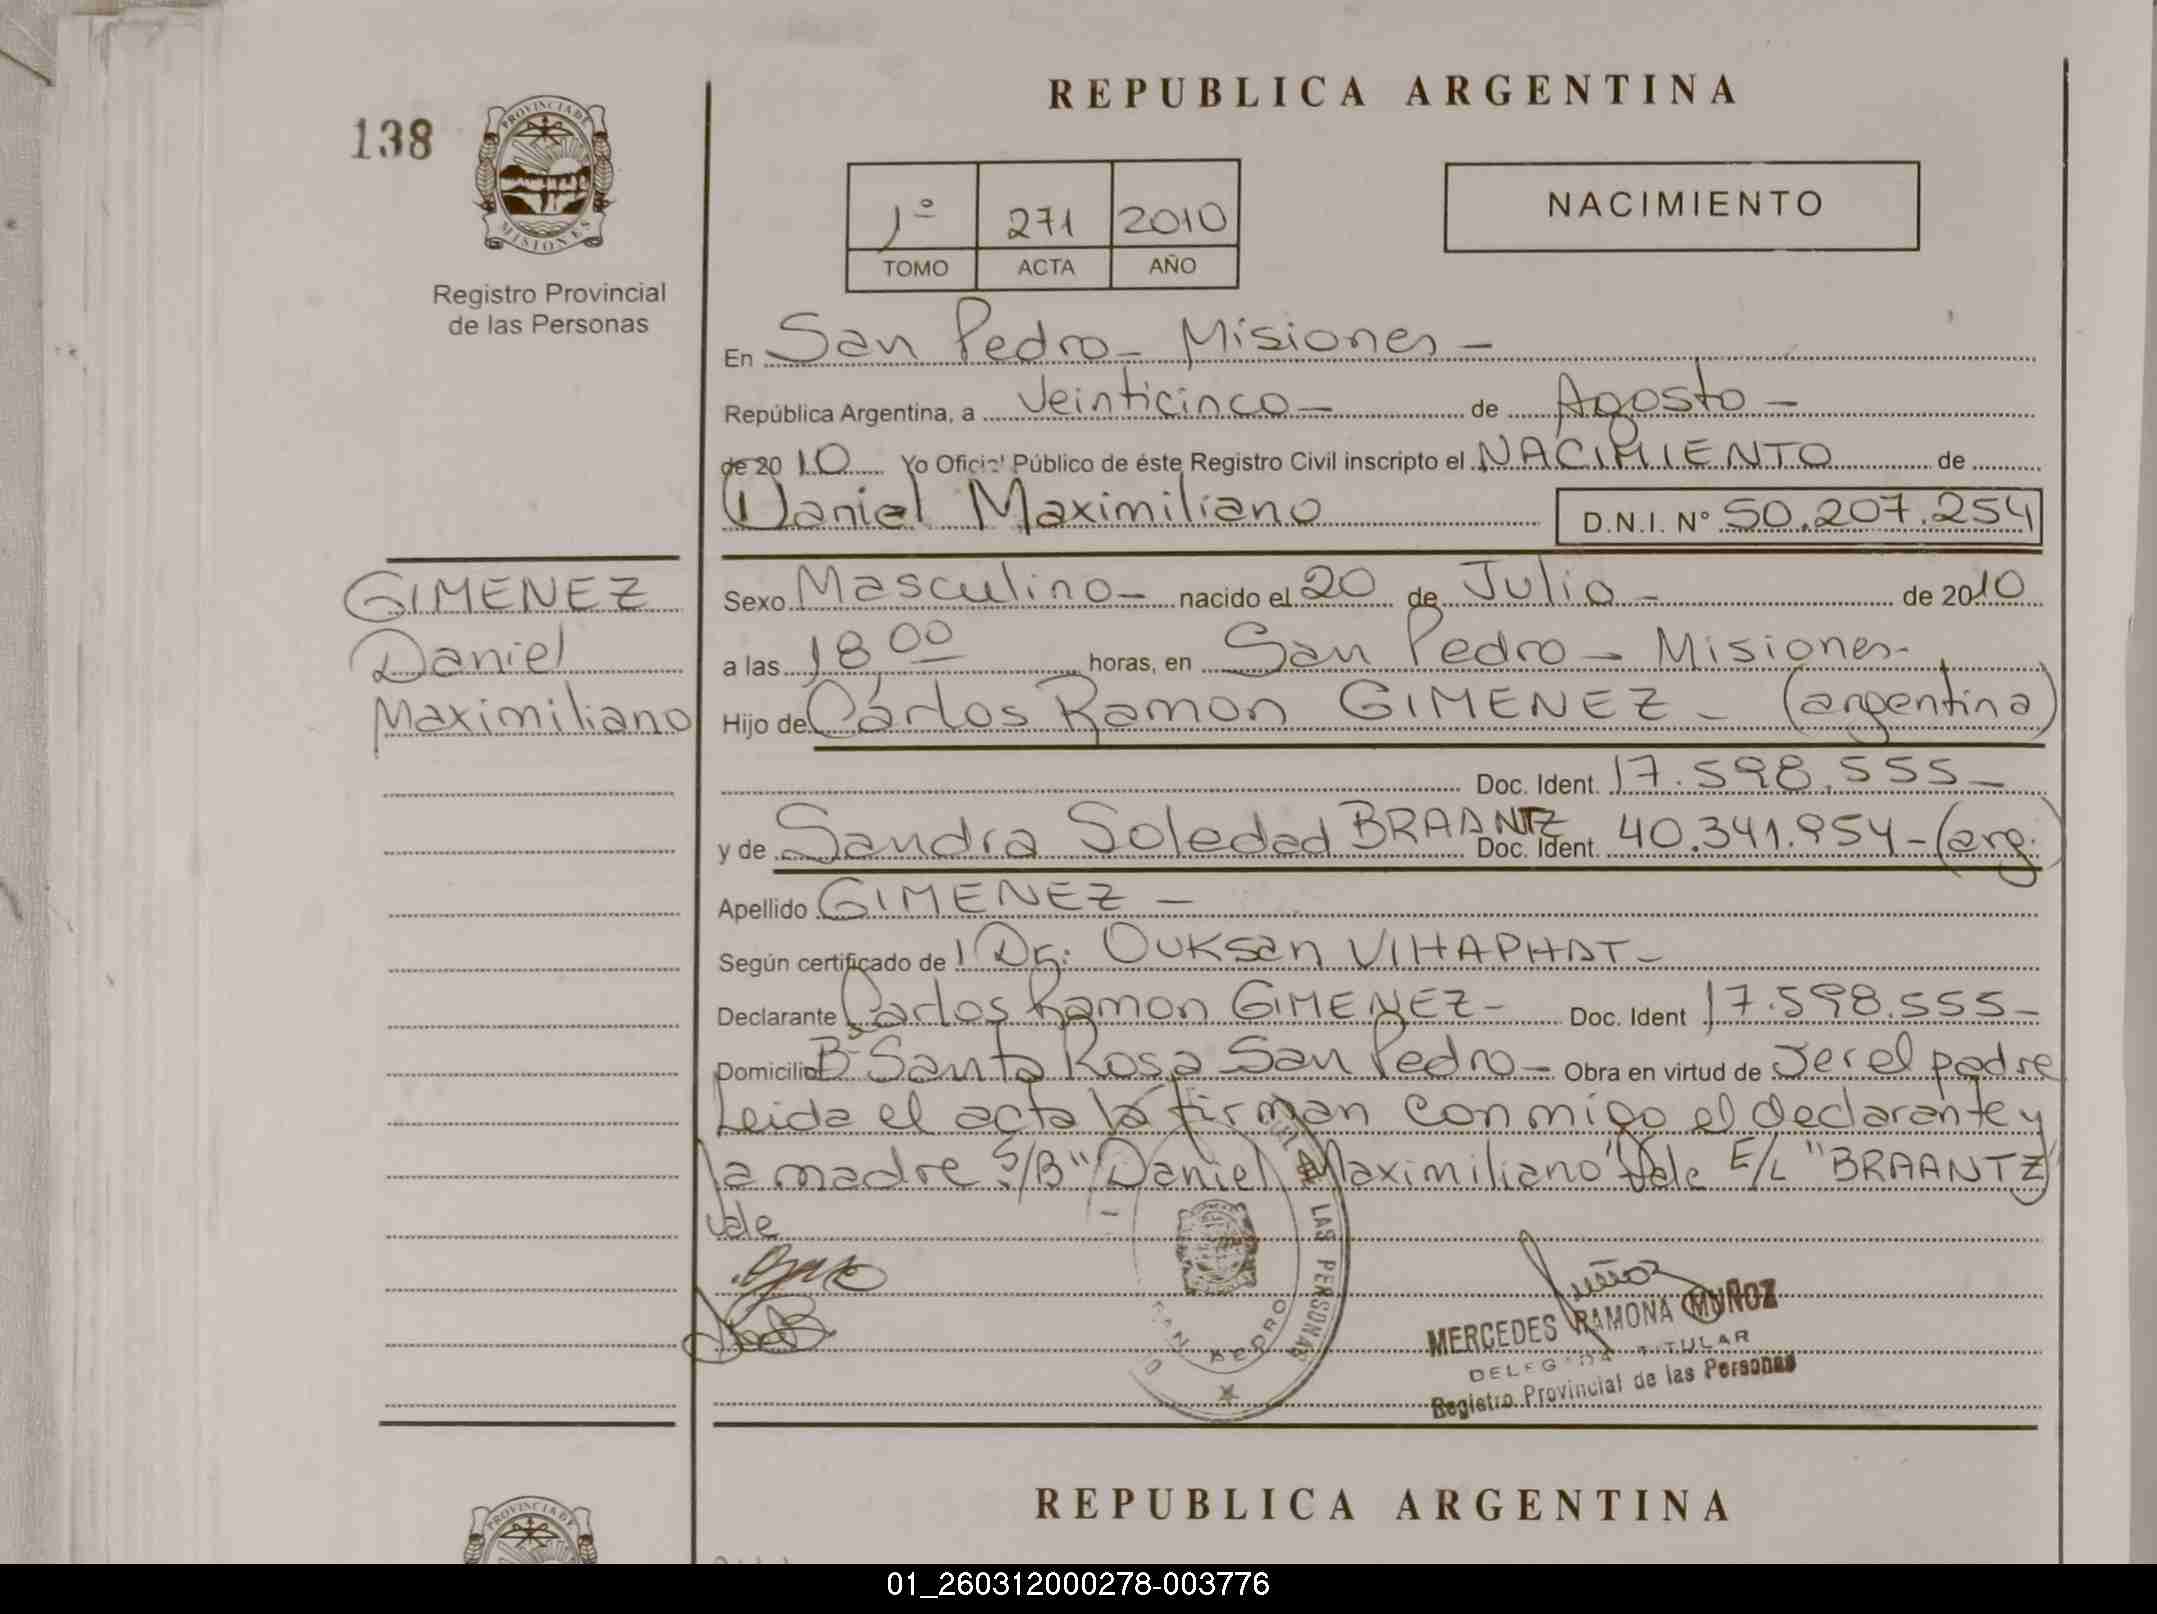 REPUBLICA ARGENTINA
138
PROVINCIA DE
MISIONES
Registro Provincial
de las Personas
1º 271 2010
TOMO ACTA AÑO
NACIMIENTO
En San Pedro - Misiones -
República Argentina, a Veinticinco - de Agosto -
de 2010 Yo Oficial Público de éste Registro Civil inscripto el NACIMIENTO de
Daniel Maximiliano D.N.I. Nº 50.207.254
GIMENEZ
Daniel
Maximiliano
Sexo Masculino - nacido el 20 de Julio - de 2010
a las 18 00 horas, en San Pedro - Misiones -
Hijo de Carlos Ramon GIMENEZ - (argentina)
Doc. Ident. 17.598.555 -
y de Sandra Soledad BRAANTZ Doc. Ident. 40.341.954 - (arg.
Apellido GIMENEZ -
Según certificado de Dr: Ouksan VIHAPHAT -
Declarante Carlos Ramon GIMENEZ - Doc. Ident 17.598.555 -
Domicilio Bº Santa Rosa San Pedro - Obra en virtud de ser el padre
Leida el acta la firman conmigo el declarante y
la madre S/B "Daniel Maximiliano" Vale E/L "BRAANTZ"
Vale
LAS PERSONAS
SAN PEDRO
Muñoz
MERCEDES RAMONA MUÑOZ
DELEGADA TITULAR
Registro Provincial de las Personas
REPUBLICA ARGENTINA
PROVINCIA DE
01_260312000278-003776